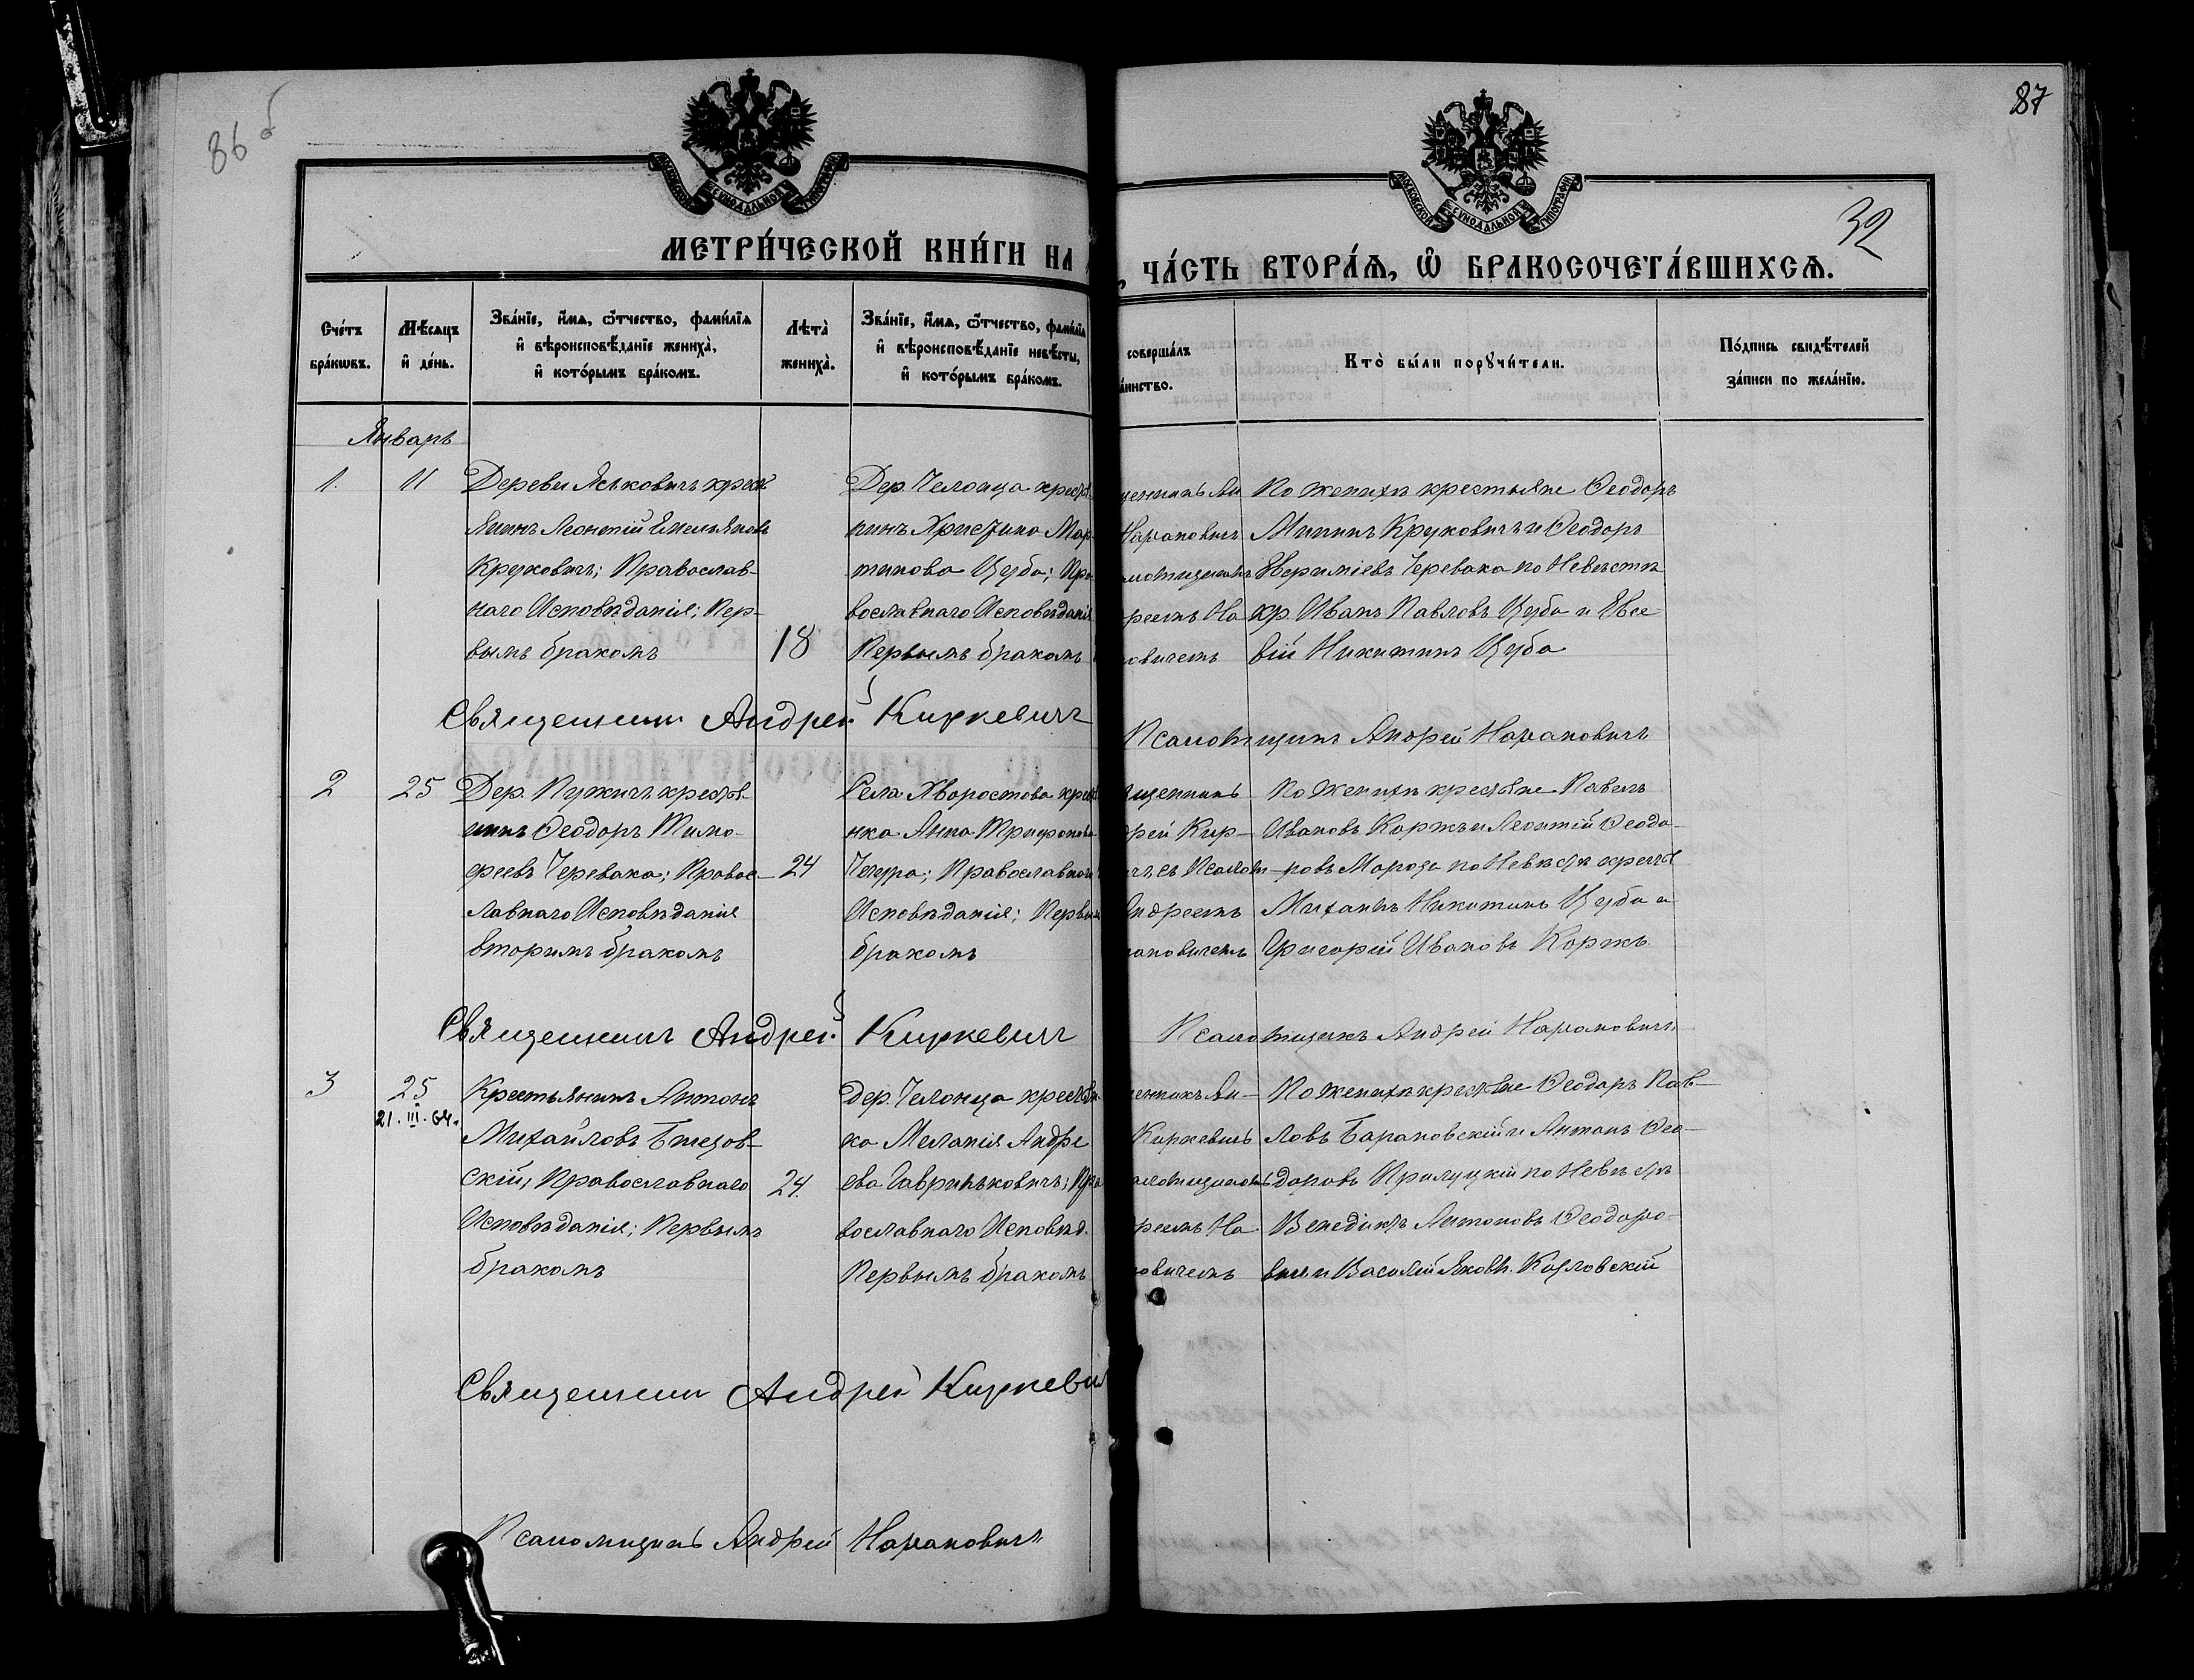 86 б
87
32
МОСКОВСКОЙ СУНОДАЛЬНОЙ ТИПОГРАФІИ
МОСКОВСКОЙ СУНОДАЛЬНОЙ ТИПОГРАФІИ
МЕТРИ́ЧЕСКОЙ КНИ́ГИ НА
, ЧА́СТЬ ВТОРА́Ѧ, Ѽ БРАКОСОЧЕТА́ВШИХСѦ.
Сче́тъ бра́кѡвъ.
Мѣ́сяцъ и҆ де́нь.
Зва́нїе, и҆́мѧ, ѻ҆́тчество, фами́лїѧ
и҆ вѣроисповѣ́данїе жениха̀,
и҆ кото́рымъ бра́комъ.
Лѣта̀ жениха̀.
Зва́нїе, и҆́мѧ, ѻ҆́тчество, фами́лїѧ
и҆ вѣроисповѣ́данїе невѣ́сты,
и҆ кото́рымъ бра́комъ.
соверша́лъ
а́инство.
Кто̀ бы́ли порꙋчи́тели.
По́дпись свидѣ́телей
за́писи по жела́нїю.
Январь
1.
11
Деревни Яськовичъ крест
янинъ Леонтій Емельяновъ
Круковичъ; Православ-
наго Исповѣданія; Пер-
вымъ бракомъ
18
Дер. Челонца крест
Христина Мар-
тинова Цуба; Пра
вославнаго Исповѣданія
Первымъ бракомъ
Нарановичъ
реемъ На
овичемъ
По женихѣ крестьяне Ѳеодоръ
Мининъ Круковичъ и Ѳеодоръ
Іереміевъ Черевака по Невѣстѣ
кр. Иванъ Павловъ Цуба и Евсе-
вій Никитинъ Цуба
Священникъ Андрей Киркевичъ
Псаломщикъ Андрей Нарановичъ
2
25
Дер. Пужичъ крестья-
нинъ Ѳеодоръ Тимо-
феевъ Черевака; Правос-
лавнаго Исповѣданія
вторымъ бракомъ
24
Села Хворостова крест
нка Анна Трифонова
Православнаго
Исповѣданія; Первым
бракомъ
щенникъ
рей Кир-
чъ съ Псалом-
Андреемъ
рановичемъ
По женихѣ крестьяне Павелъ
Ивановъ Коржъ и Леонтій Ѳеодо-
ровъ Мороза по Невѣстѣ крест
Михаилъ Никитинъ Цуба и
Григорій Ивановъ Коржъ
Священникъ Андрей Киркевичъ
Псаломщикъ Андрей Нарановичъ
3
25
21. III. 64.
Крестьянинъ Антонъ
Михайловъ
скій, Православнаго
Исповѣданія; Первымъ
бракомъ
24.
Дер. Челонца крестьян
ка Меланія Андре
ева Гавриньковичъ; Пра
вославнаго Исповѣд.
Первымъ бракомъ
енникъ Ан-
Киркевичъ
аломщикомъ
реемъ На
овичемъ
По женихѣ крестьяне Ѳеодоръ Пав-
ловъ Барановскій и Антонъ Ѳео-
доровъ Прилуцкій по Невѣстѣ
Венедиктъ Антоновъ Ѳеодоро-
вич и Василій Яковл. Козловскій
Священникъ Андрей Киркевич
Псаломщикъ Андрей Нарановичъ